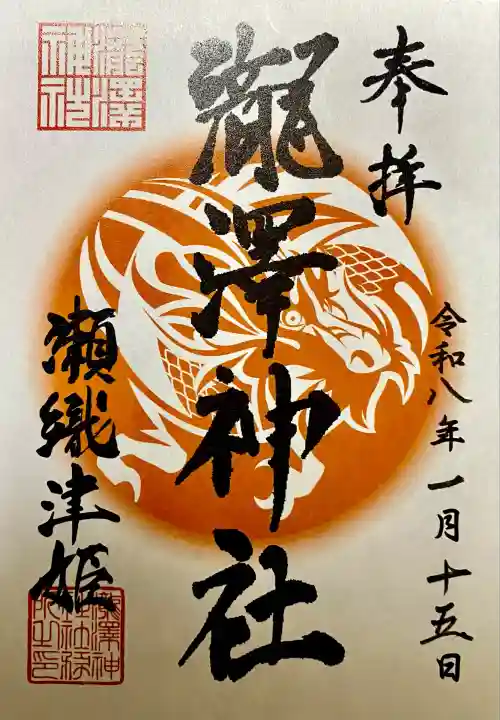 奉拝
令和八年一月十五日
瀧澤神社
瀬織津姫
瀧澤神社